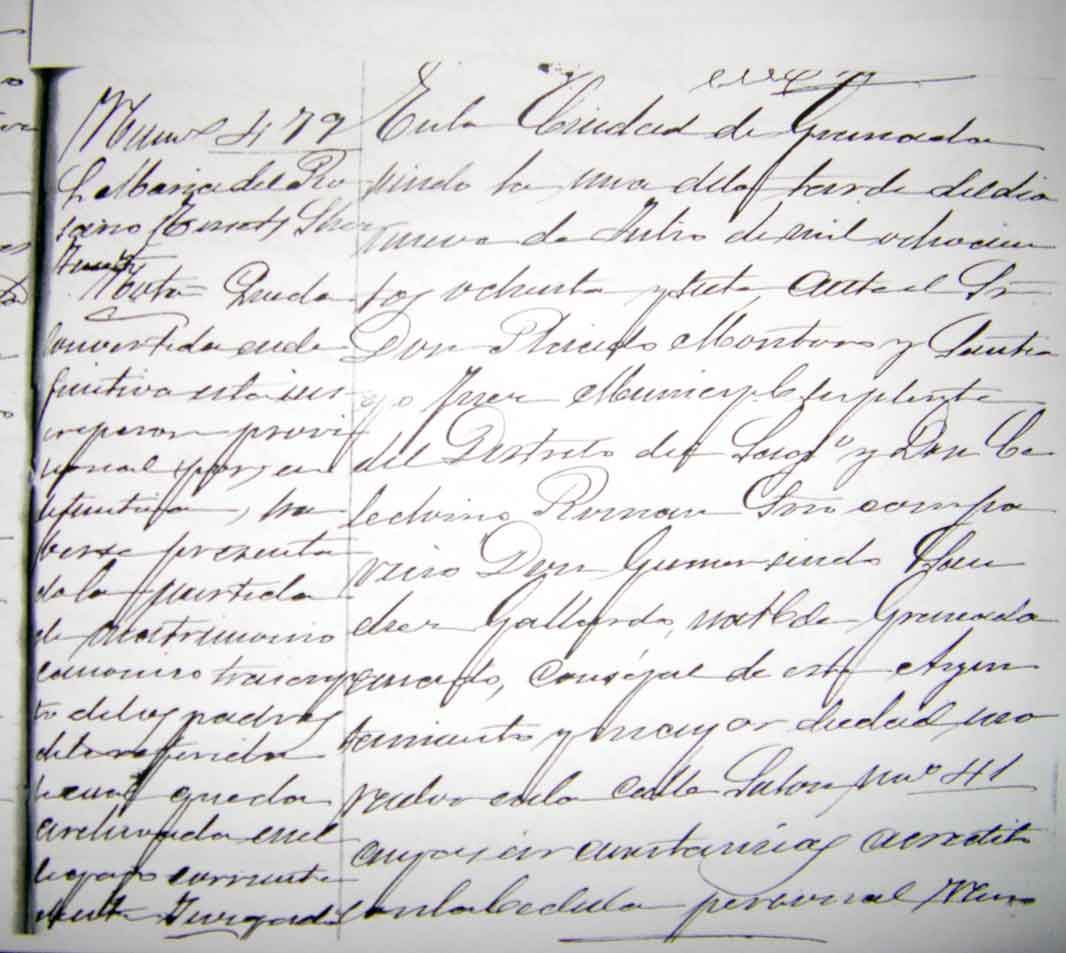 Numº 479
Mª Maria del Ro
sario
Nota = Queda
convertida en de
finitiva esta ins
cripcion provi
sional por, en
definitiva, ha
berse presenta
do la partida
de matrimonio
canonico transcri
to de los padres
de la referida
la cual queda
archivada en el
legajo corriente
Juzgado
En la Ciudad de Granada
siendo la una de la tarde del dia
nueve de Julio de mil ochocien
tos ochenta y siete, ante el Sr
Don Placido Montoro y Santia
go Juez Municipal suplente
del Distrito del Sagº y Don Ce
ledonio Roman Srio compa
recio Don Gumersindo San
chez Gallardo, natl de Granada
casado, Consejal de este Ayun
tamiento y mayor de edad,
calle Salon Nº 41
cuyas circunstancias acredito
con la cedula personal Num